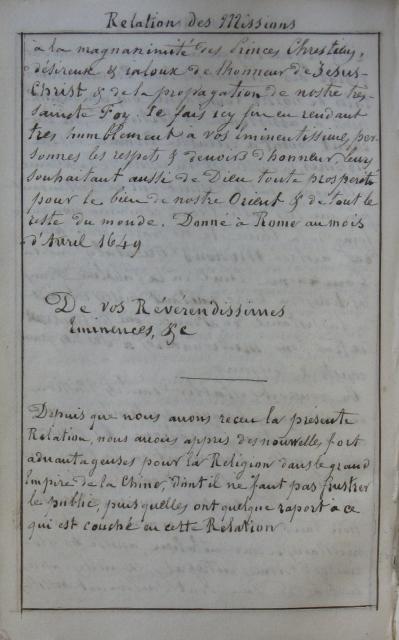 Relation des Missions
à la magnanimité des Princes Chrestiens,
désireux & ialoux de lhonneur de Jesus-
Christ & de la propagation de nostre très-
saincte Foy. Je fais icy fin en rendant
tres humblement a vos eminentissimes per-
sonnes les respets & devoirs dhonneur, leurs
souhaitant aussi de Dieu toute prosperité
pour le bien de nostre Orient & de tout le
reste du monde. Donné à Rome au mois
d'Avril 1649
De vos Révérendissimes
Eminences, &c
Depuis que nous auons receu la présente
Relation, nous auons appris des nouvelles fort
aduantageuses pour la Religion dans le grand
Empire de la Chine, dont il ne faut pas frustrer
le public, puis quelles ont quelque raport à ce
qui est couché en cette Relation